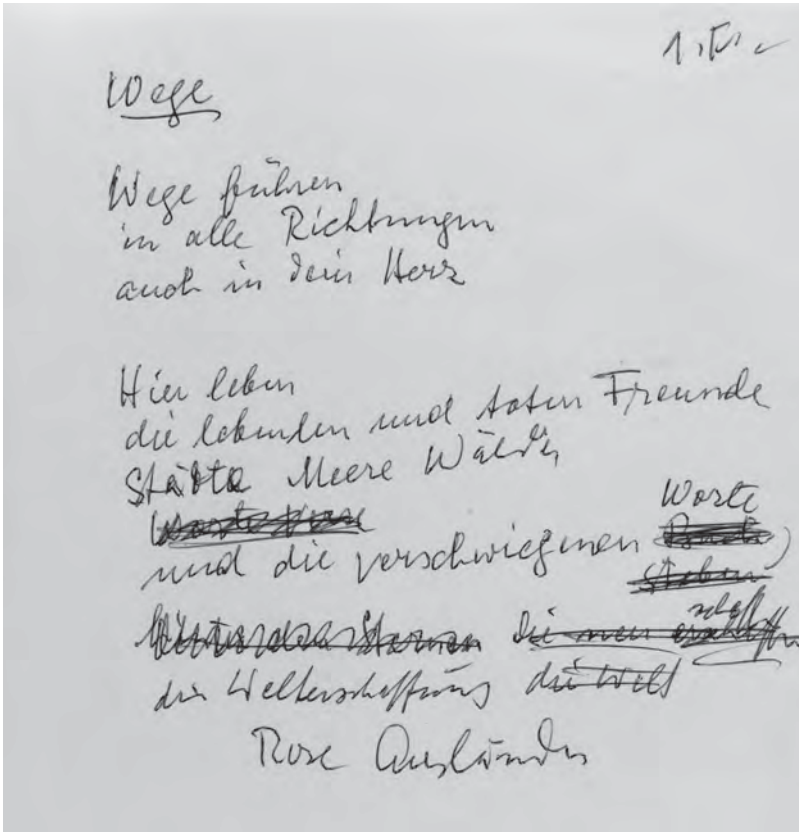 1. F.
Wege
Wege führen
in alle Richtungen
auch in dein Herz
Hier leben
die lebenden und toten Freunde
Städte Meere Wälder
Worte
und die verschwiegenen
die Welterschaffung die Welt
Rose Ausländer